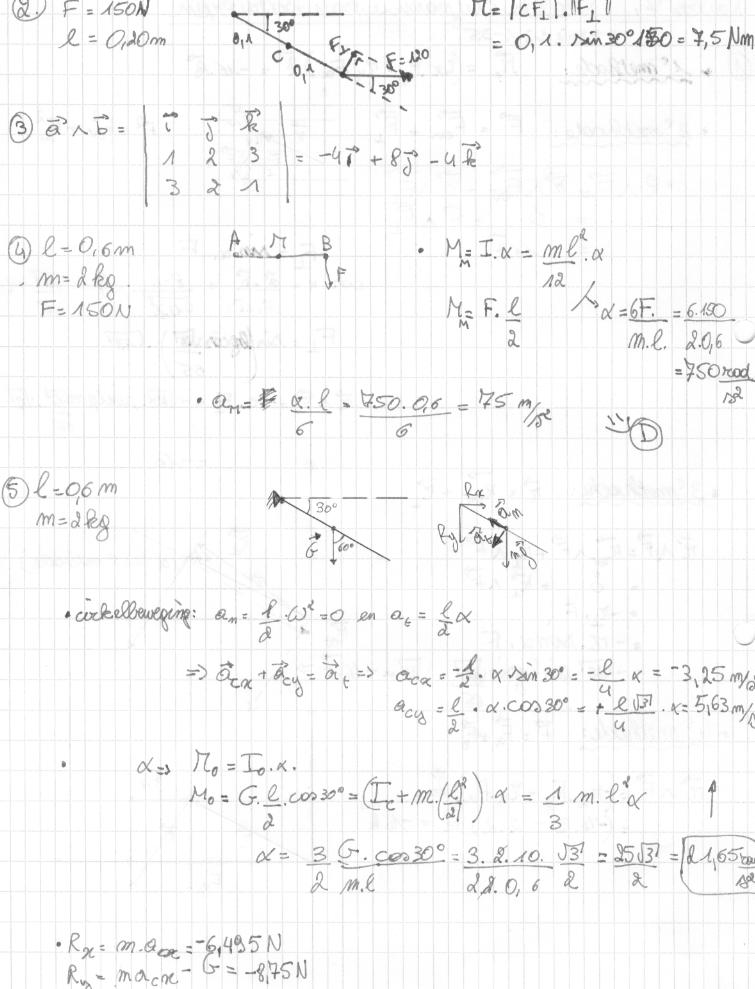 2. F = 150N
l = 0,20m
30°
0,1
C
0,1
Fy
F=120
30°
M = |CF⊥|.‖F⊥‖
= 0,1. sin30° 150 = 7,5 Nm
③ a⃗ ∧ b⃗ = | i⃗ j⃗ k⃗ |
1 2 3 = -4i⃗ + 8j⃗ - 4k⃗
3 2 1
④ l = 0,6m
m = 2kg.
F = 150N
A M B
F
• M_M = I.α = ml²/12 . α
M_M = F. l/2
α = 6F/m.l. = 6.150/2.0,6
= 750 rad/s²
• a_M = α.l/6 = 750.0,6/6 = 75 m/s²
D
⑤ l = 0,6m
m = 2kg
30°
G⃗ 60°
Rx
Ry
a⃗n
a⃗t
mg⃗
• cirkelbeweging: an = l/2 . ω² = 0 en at = l/2 α
=> a⃗cx + a⃗cy = a⃗t => acx = -l/2 . α sin30° = -l/4 α = -3,25 m/s
acy = l/2 . α.cos30° = + l√3/4 . α = 5,63 m/s
• α => M₀ = I₀.α.
M₀ = G. l/2 . cos30° = (Ic + m.(l²/2)) α = 1/3 m.l²α
α = 3/2 G.cos30°/m.l = 3.2.10./2.2.0,6 √3/2 = 25√3/2 = 21,65 rad/s²
• Rx = m.acx = -6,495N
= macx - G = -8,75N